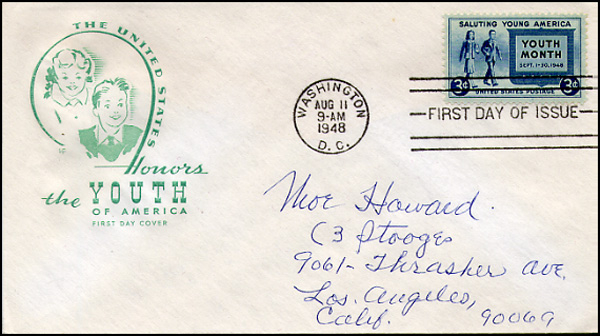 THE UNITED STATES
Honors
the YOUTH
OF AMERICA
FIRST DAY COVER
WASHINGTON
AUG 11
9-AM
1948
D. C.
SALUTING YOUNG AMERICA
YOUTH
MONTH
SEPT. 1-30, 1948
3¢ 3¢
UNITED STATES POSTAGE
FIRST DAY OF ISSUE
Moe Howard.
(3 Stooges
9061- Thrasher Ave.
Los. Angeles,
Calif. 90069